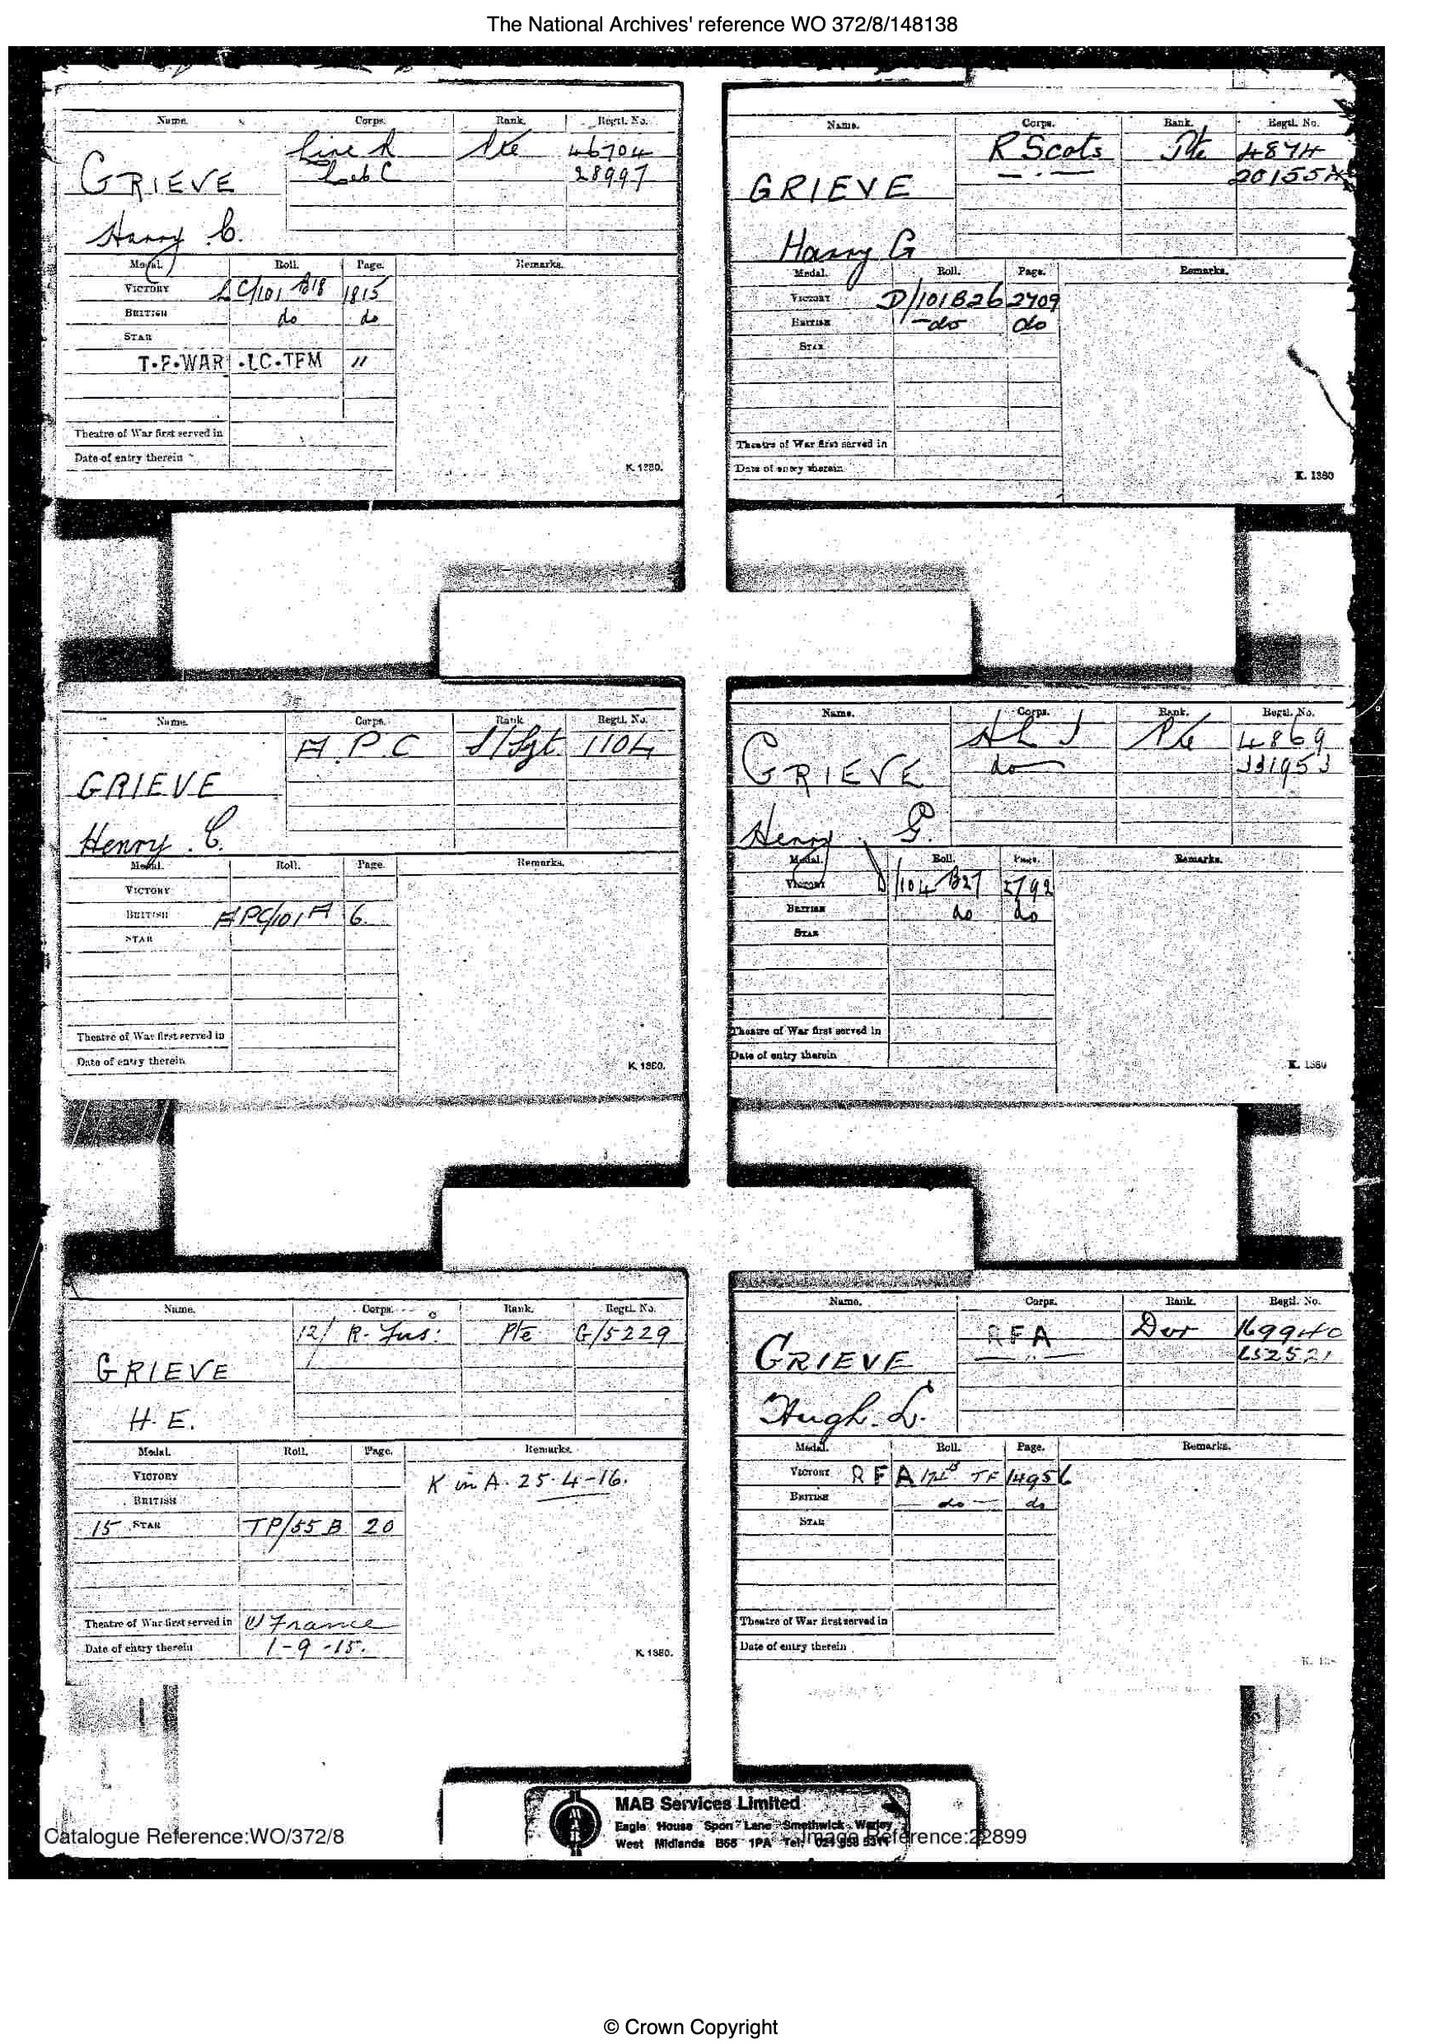 The National Archives' reference WO 372/8/148138
Name. Corps. Rank. Regtl. No.
Pte 46704
Lab C 28997
GRIEVE
Harry C.
Medal. Roll. Page. Remarks.
VICTORY LC/101 B18 1815
BRITISH do do
STAR
T.F.WAR .LC.TFM "
Theatre of War first served in
Date of entry therein
K. 1380.
Name. Corps. Rank. Regtl. No.
R Scots Pte 4874
20155
GRIEVE
Harry G
Medal. Roll. Page. Remarks.
VICTORY D/101B26 2709
BRITISH -do- do
STAR
Theatre of War first served in
Date of entry therein
K. 1380
Name. Corps. Rank Regtl. No.
A.P.C S/Sgt 1104
GRIEVE
Henry. C.
Medal. Roll. Page. Remarks.
VICTORY
BRITISH APC/101A 6.
STAR
Theatre of War first served in
Date of entry therein
K. 1380.
Name. Corps. Rank. Regtl. No.
H L I Pte 4869
do 331953
GRIEVE
Henry G.
Medal. Roll. Page. Remarks.
VICTORY D/104 B27 2792
BRITISH do do
STAR
Theatre of War first served in
Date of entry therein
K. 1380
Name. Corps. Rank. Regtl. No.
12/ R. Fus: Pte G/5229
GRIEVE
H. E.
Medal. Roll. Page. Remarks.
VICTORY K in A. 25-4-16.
BRITISH
15 STAR TP/55B 20
Theatre of War first served in (1) France
Date of entry therein 1-9-15.
K. 1380.
Name. Corps. Rank. Regtl. No.
RFA Dvr 169940
652521
GRIEVE
Hugh. L.
Medal. Roll. Page. Remarks.
VICTORY RFA TF 14956
BRITISH -do- do
STAR
Theatre of War first served in
Date of entry therein
MAB Services Limited
Eagle House Spon Lane Smethwick Warley
West Midlands B66 1PA Tel:
Catalogue Reference:WO/372/8 Image Reference:22899
© Crown Copyright